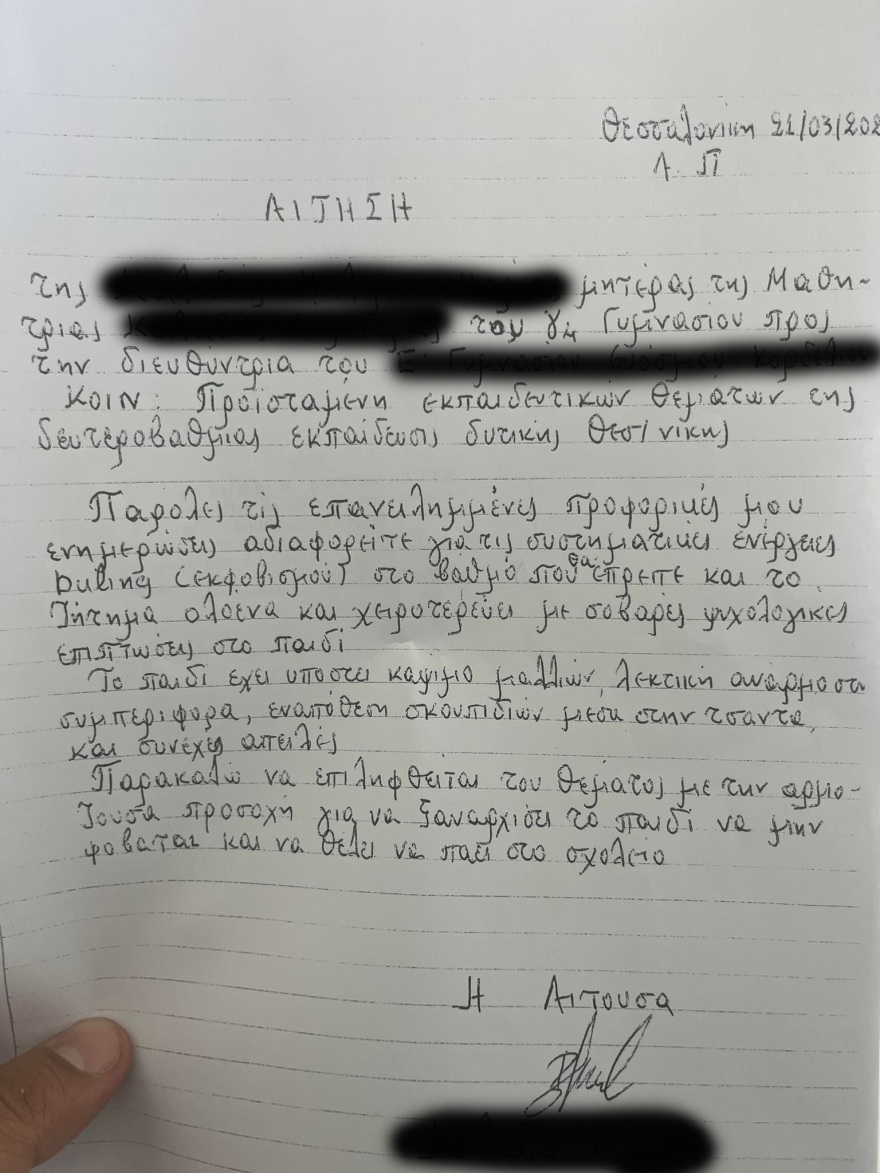 Θεσσαλονίκη 21/03/202
Α. Π
ΑΙΤΗΣΗ
της μητέρας της Μαθη-
τριας του γ4 Γυμνασιου προς
την διευθύντρια του
ΚΟΙΝ: Προϊσταμένη εκπαιδευτικών θεμάτων της
δευτεροβαθμιας εκπαίδευσις δυτικής Θεσ/νίκης
Παρόλες τις επανειλημμένες προφορικές μου
ενημερώσεις αδιαφορείτε για τις συστηματικες ενέργειες
buling (εκφοβισμού) στο βαθμό που θα έπρεπε και το
Ζήτημα ολοενα και χειροτερεύει με σοβαρές ψυχολογικες
επιπτώσεις στο παιδί
Το παιδί εχει υποστει καψιμο μαλλιών, λεκτική ανάρμοστη
συμπεριφορα, εναπόθεση σκουπιδιών μεσα στην τσαντα,
και συνεχης απειλές
Παρακαλώ να επιληφθείται του θεματος με την αρμο-
ζουσα προσοχή για να ξαναρχισει το παιδι να μην
φοβαται και να θελει να παει στο σχολειο
Η Αιτουσα